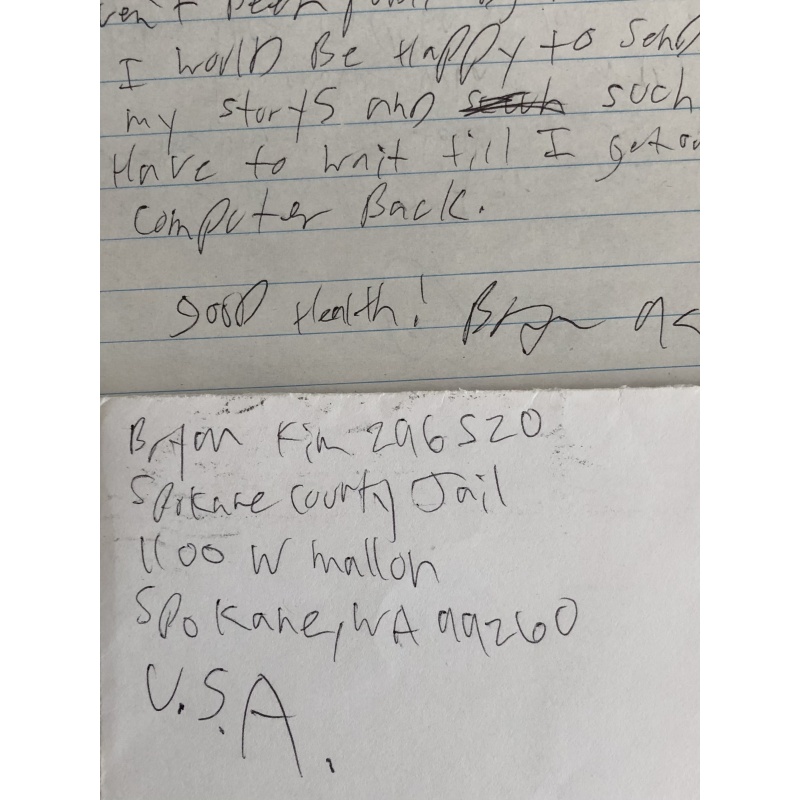 I would Be Happy to send
my storys and such such
Have to wait till I get ou
computer Back.
good Health! Bryan
Bryan Kim 296520
Spokane county Jail
1100 W mallon
Spokane, WA 99260
U.S.A.